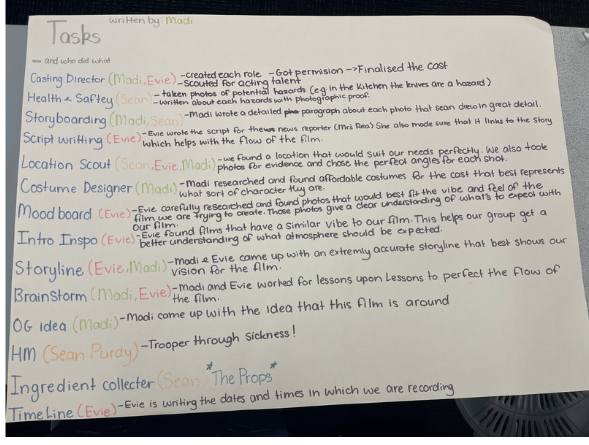 written by: Madi
Tasks
and who did what
Casting Director (Madi, Evie) - created each role - Got permision -> Finalised the cast
- Scouted for acting talent
Health & Saftey (Sean) - taken photos of potential hazards (e.g in the kitchen the knives are a hazard)
- written about each hazards with photographic proof.
Storyboarding (Madi, Sean) - Madi wrote a detailed paragraph about each photo that Sean drew in great detail.
Script writting (Evie) - Evie wrote the script for the news reporter (Mrs Rea) She also made sure that it links to the story
which helps with the flow of the film.
Location Scout (Sean, Evie, Madi) - we found a location that would suit our needs perfectly. We also took
photos for evidence and chose the perfect angles for each shot.
Costume Designer (Madi) - Madi researched and found affordable costumes for the cast that best represents
what sort of character they are.
Mood board (Evie) - Evie carefully researched and found photos that would best fit the vibe and feel of the
film we are trying to create. Those photos give a clear understanding of what's to expect with
our film.
Intro Inspo (Evie) - Evie found films that have a similar vibe to our film. This helps our group get a
better understanding of what atmosphere should be expected.
Storyline (Evie, Madi) - Madi & Evie came up with an extremly accurate storyline that best shows our
vision for the film.
BrainStorm (Madi, Evie) - Madi and Evie worked for lessons upon lessons to perfect the flow of
the film.
OG idea (Madi) - Madi come up with the idea that this film is around
HM (Sean Purdy) - Trooper through sickness!
Ingredient collecter (Sean) *The Props*
Time Line (Evie) - Evie is writing the dates and times in which we are recording